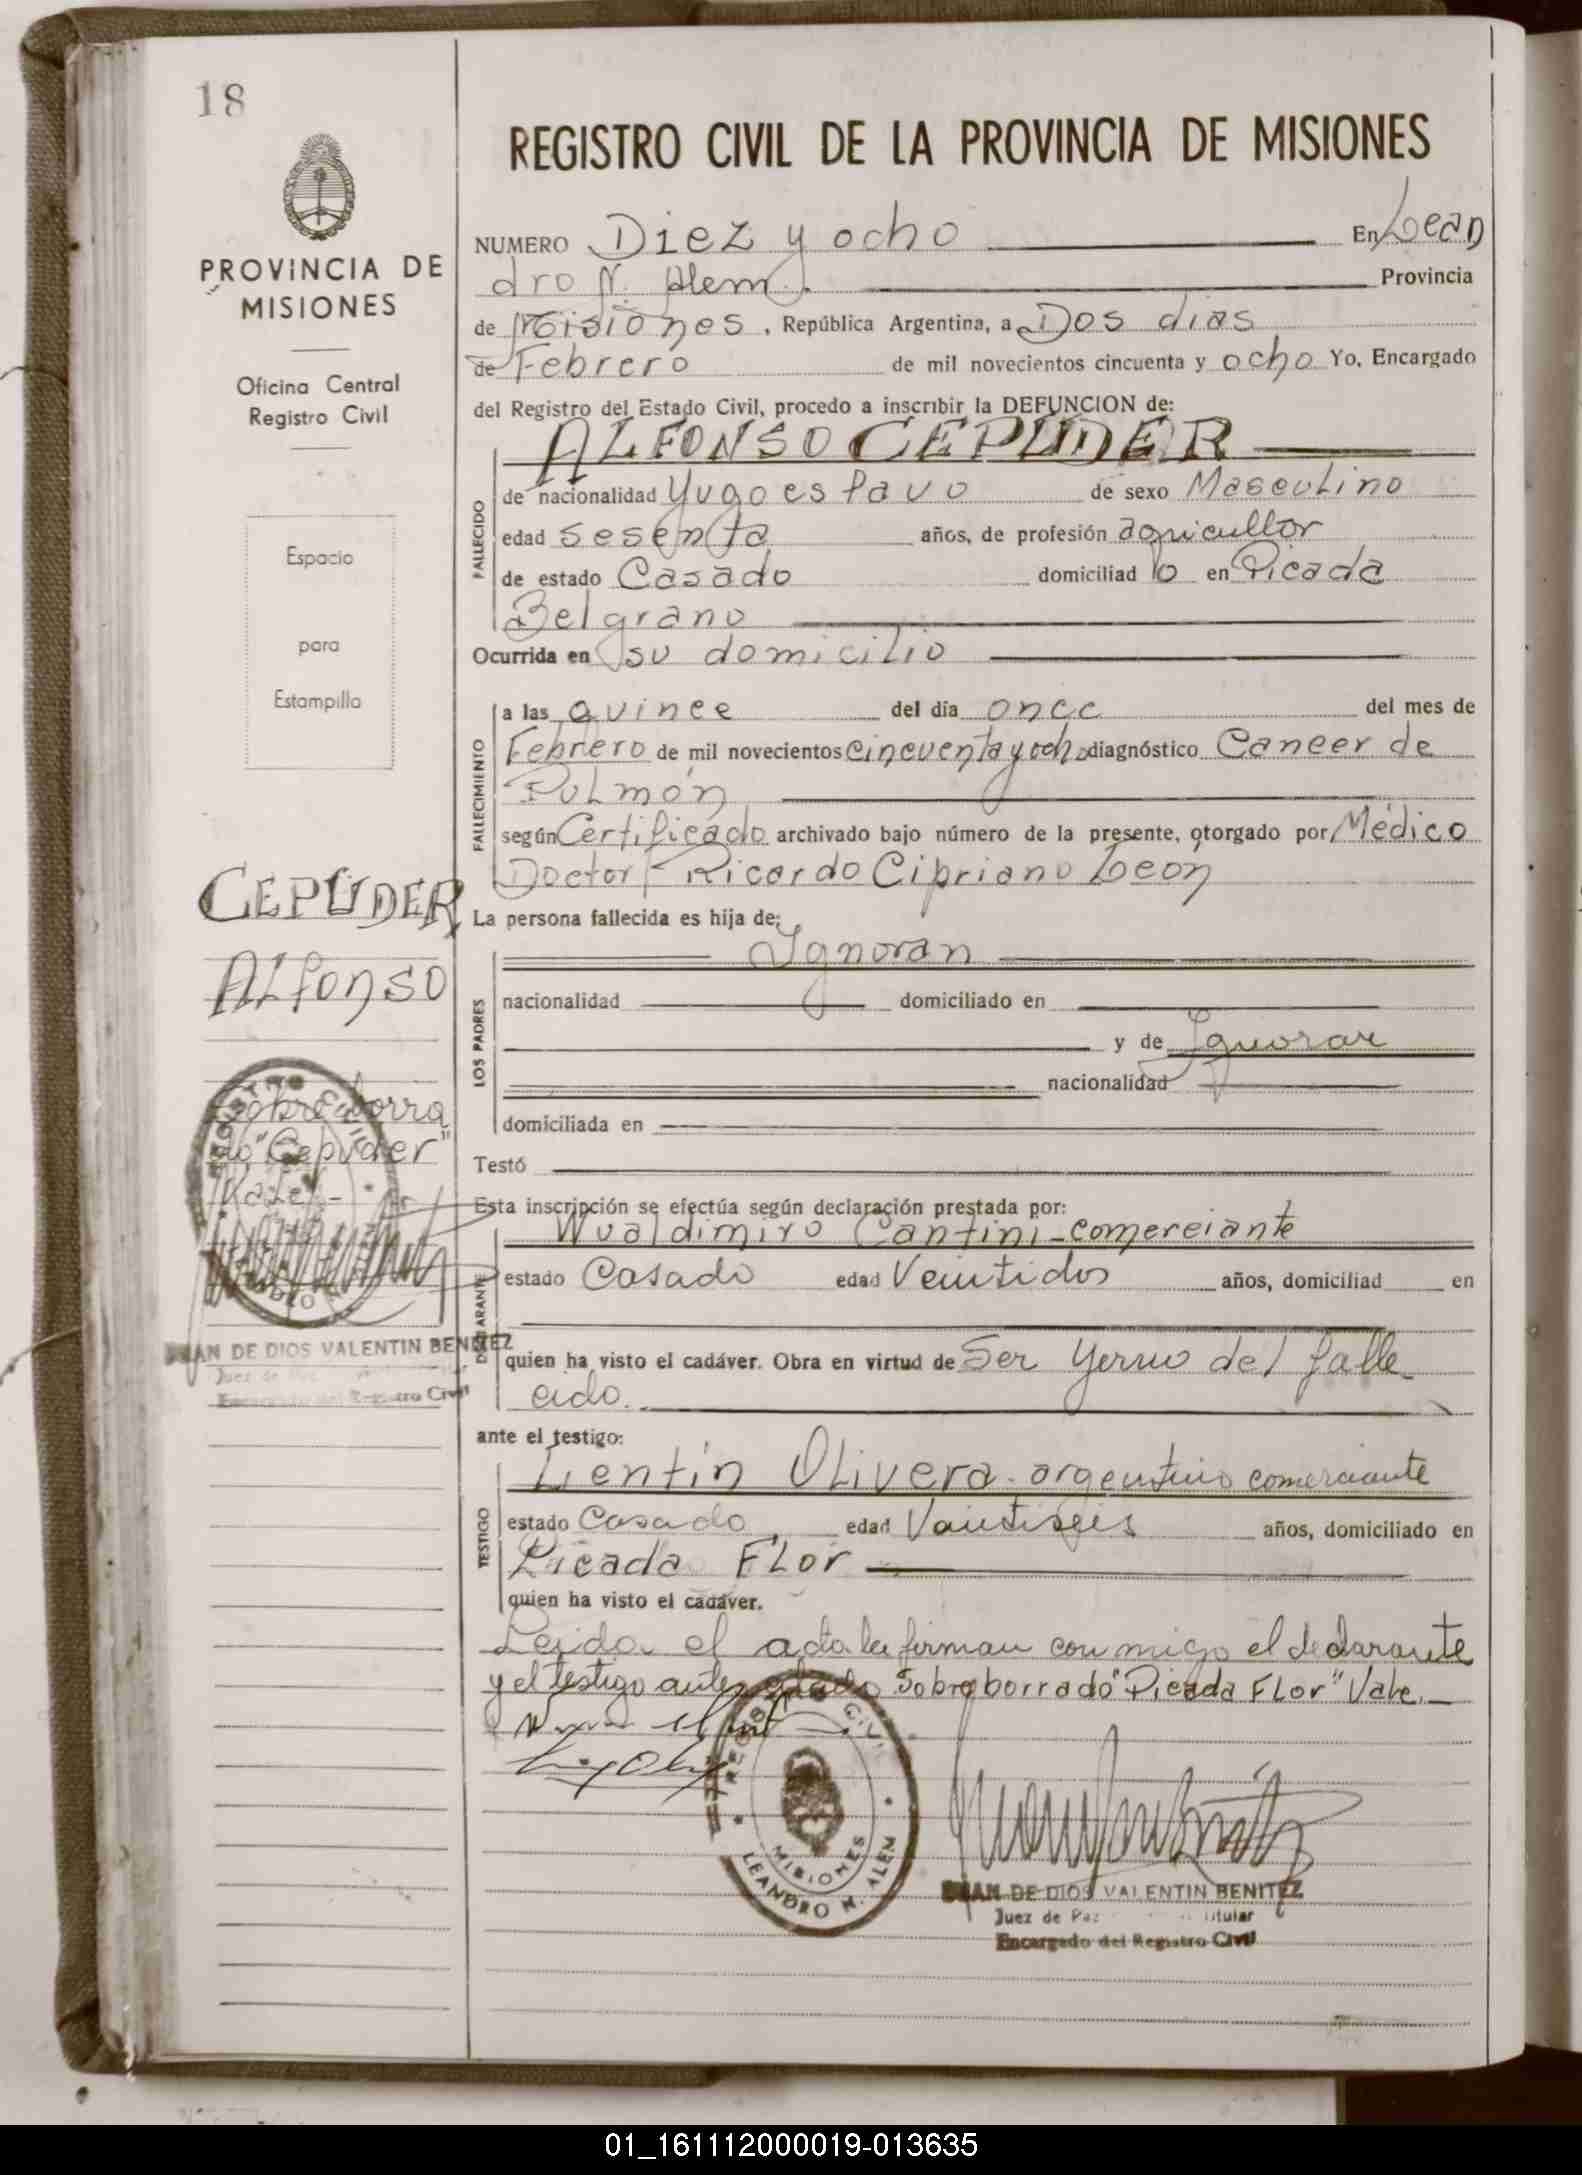 18
PROVINCIA DE
MISIONES
Oficina Central
Registro Civil
Espacio
para
Estampilla
CEPUDER
ALfonso
Sobre borra
do "Cepuder"
Vale.-
JUAN DE DIOS VALENTIN BENITEZ
Juez de Paz
Encargado del Registro Civil
REGISTRO CIVIL DE LA PROVINCIA DE MISIONES
NUMERO Diez y ocho En Lean
dro N. Alem. Provincia
de Misiones, República Argentina, a Dos dias
de Febrero de mil novecientos cincuenta y ocho Yo, Encargado
del Registro del Estado Civil, procedo a inscribir la DEFUNCION de:
ALFONSO CEPUDER
FALLECIDO
de nacionalidad Yugoeslavo de sexo Masculino
edad sesenta años, de profesión agricultor
de estado Casado domiciliad o en Picada
Belgrano
Ocurrida en su domicilio
FALLECIMIENTO
a las quince del día once del mes de
Febrero de mil novecientos cincuenta y ocho diagnóstico Cancer de
Pulmón
según Certificado archivado bajo número de la presente, otorgado por Médico
Doctor Ricardo Cipriano Leon
La persona fallecida es hija de:
LOS PADRES
Ignoran
nacionalidad domiciliado en
y de Ignoran
nacionalidad
domiciliada en
Testó
Esta inscripción se efectúa según declaración prestada por:
DECLARANTE
Wualdimiro Cantini-comerciante
estado Casado edad Veintidos años, domiciliad en
quien ha visto el cadáver. Obra en virtud de Ser Yerno del falle
cido.
ante el testigo:
TESTIGO
Olivera. argentino comerciante
estado Casado edad Veintiseis años, domiciliado en
Picada FLor
quien ha visto el cadáver.
Leida el acta la firman conmigo el declarante
y el testigo antes citado Sobre borrado "Picada FLor" Vale.-
REGISTRO CIVIL
MISIONES
LEANDRO N. ALEM
JUAN DE DIOS VALENTIN BENITEZ
Juez de Paz Titular
Encargado del Registro Civil
01_161112000019-013635